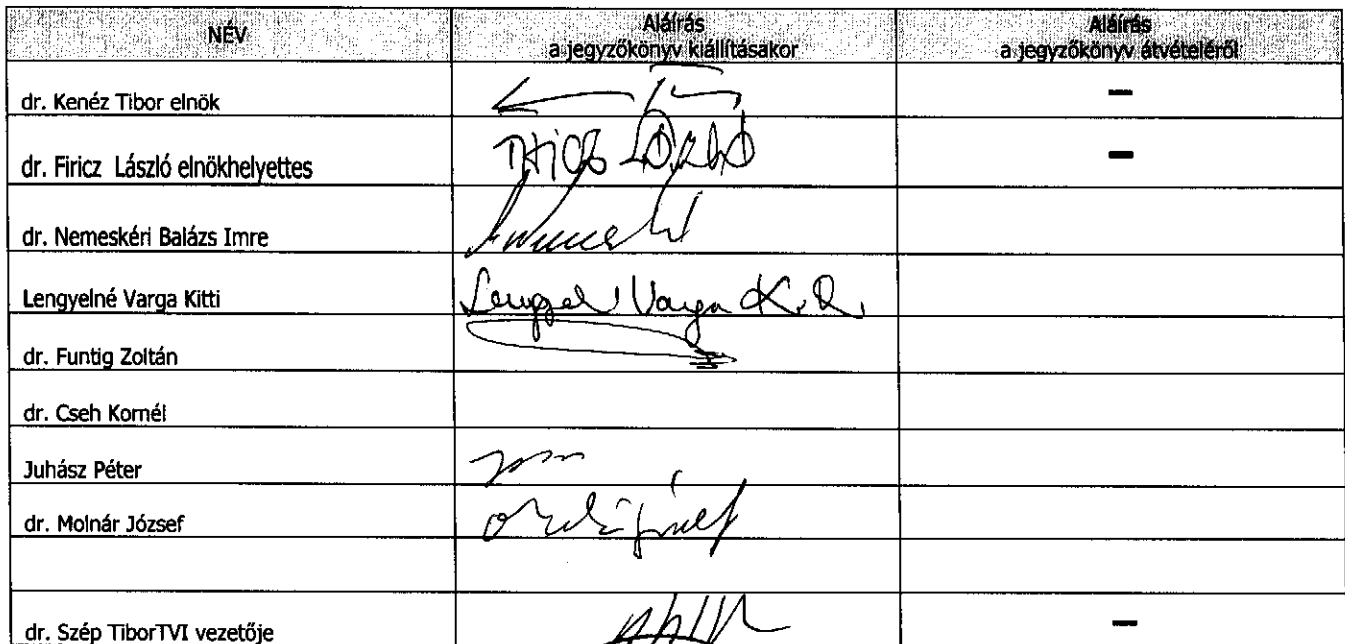 NÉV
Aláírás
a jegyzőkönyv kiállításakor
Aláírás
a jegyzőkönyv átvételéről
dr. Kenéz Tibor elnök
–
dr. Firicz László elnökhelyettes
–
dr. Nemeskéri Balázs Imre
Lengyelné Varga Kitti
Varga K.
dr. Funtig Zoltán
dr. Cseh Kornél
Juhász Péter
dr. Molnár József
dr. Szép TiborTVI vezetője
–